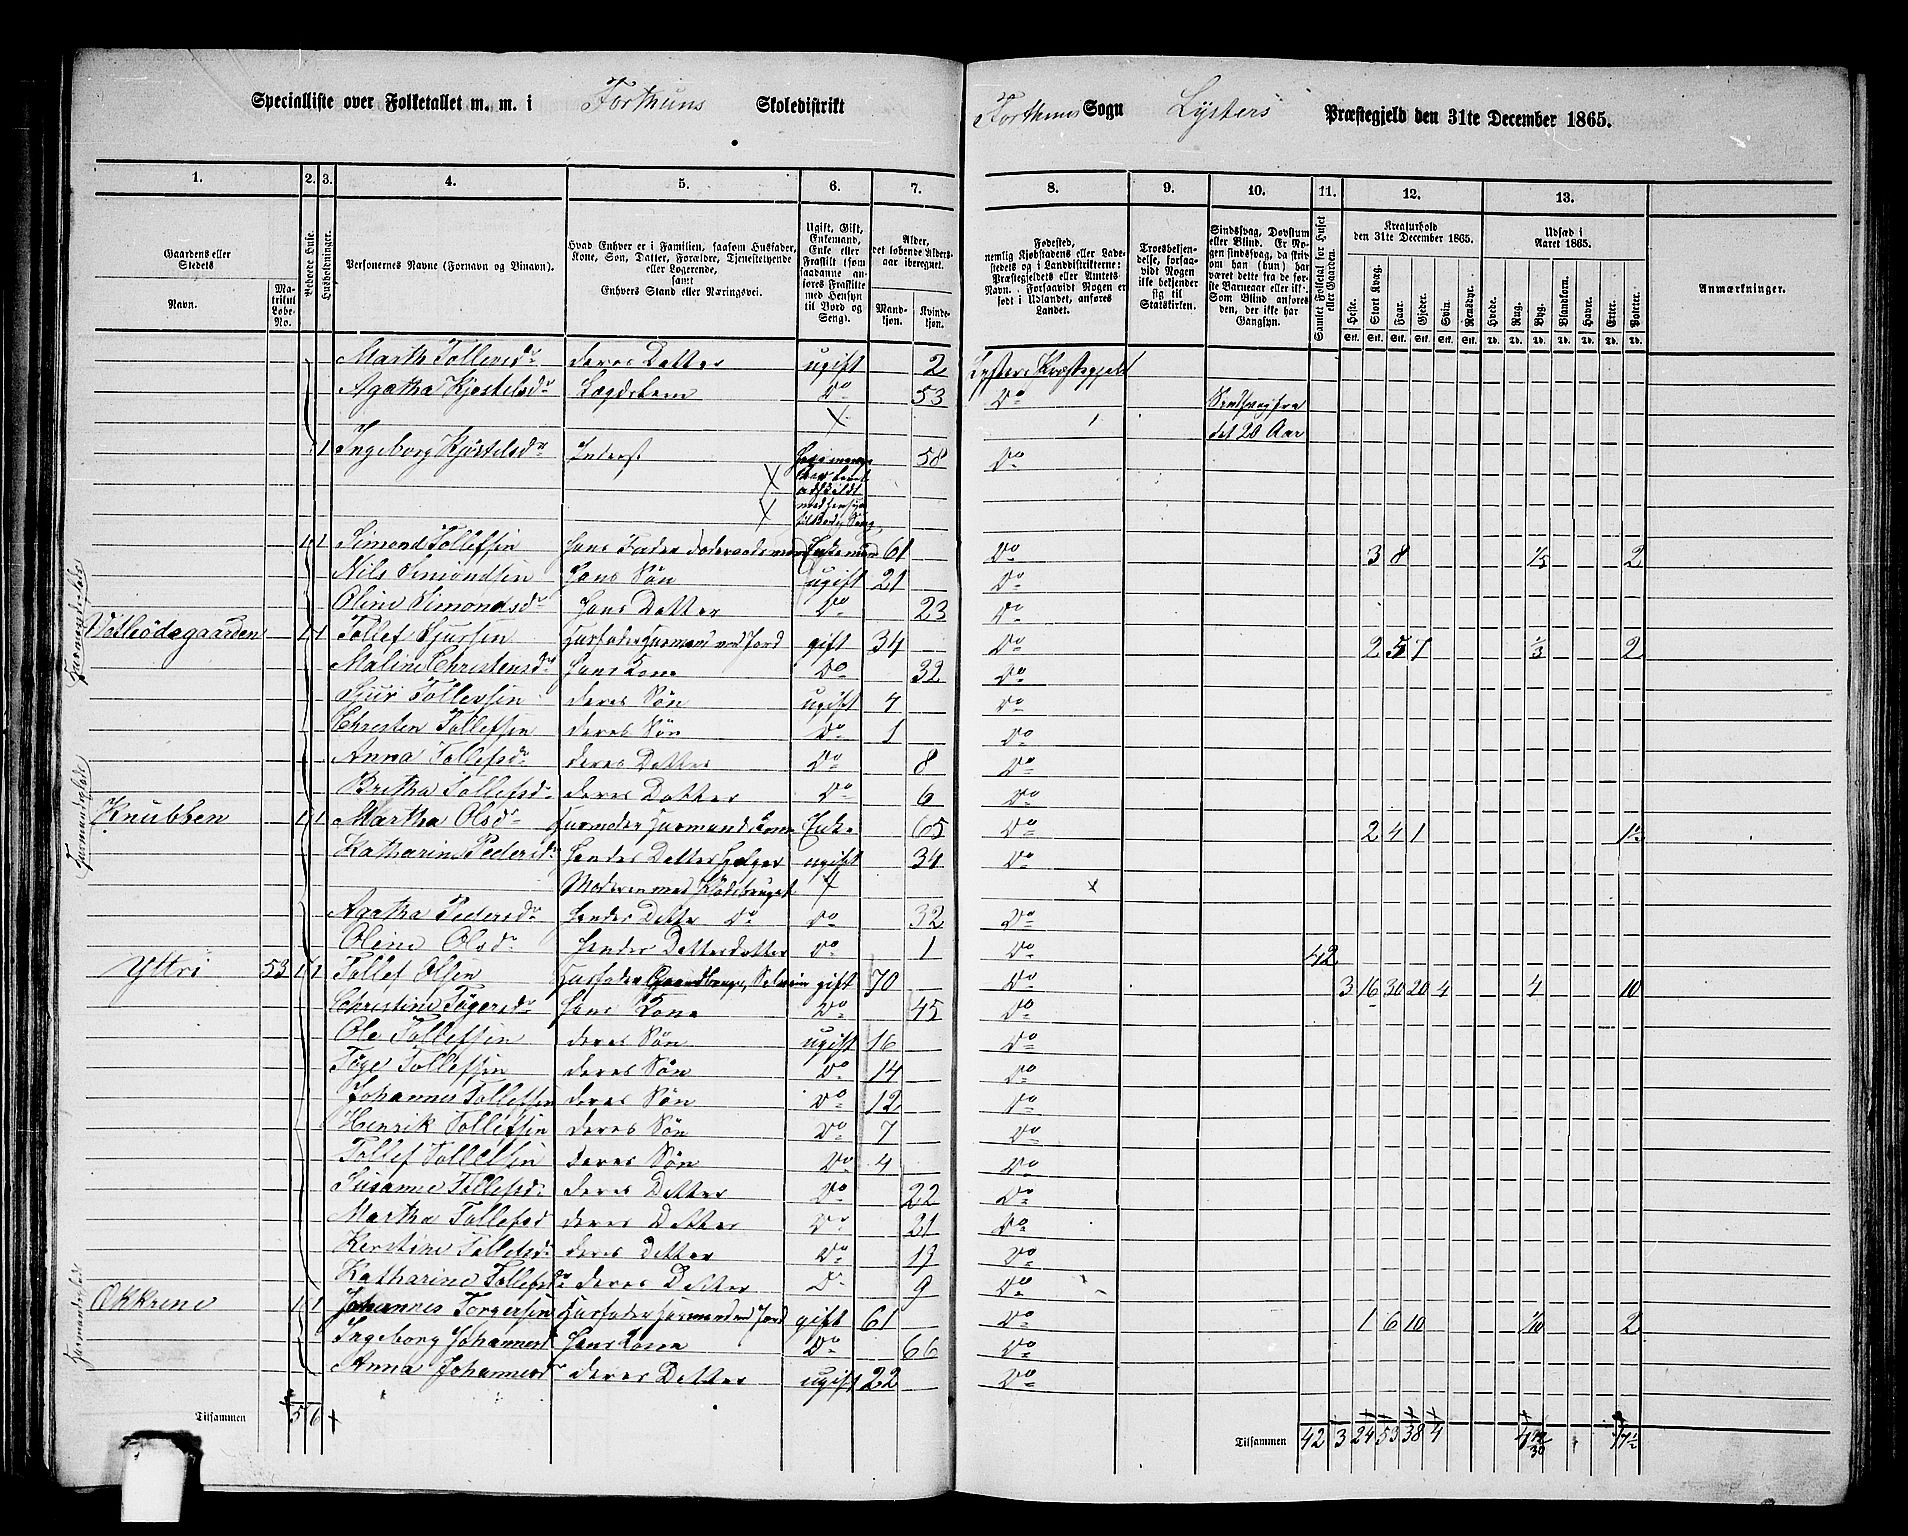 Specialliste over Folketallet m. m. i Forthuns Skoledistrikt
Forthuns Sogn Lysters Præstegjeld den 31te December 1865.
1. 2. 3. 4. 5. 6. 7. 8. 9. 10. 11. 12. 13.
Gaardens eller Stedets Navn. Matrikul Løbe-No. Beboede Huse. Husholdninger. Personernes Navne (Fornavn og Tilnavn).
Hvad Enhver er i Familien, saasom Husfader, Kone, Søn, Datter, Forældre, Tjenestetyende eller Logerende, samt Enhvers Stand eller Næringsvei.
Ugift, Gift, Enkemand, Enke eller Fraskilt (som saadanne anføres Fraskilte med Hensyn til Bord og Seng).
Alder, det løbende Aldersaar iberegnet. Mandkjøn. Kvindekjøn.
Fødested, nemlig Kjøbstadens eller Ladestedets og i Landdistrikterne: Præstegjeldets eller Amtets Navn. Forsaavidt Nogen er født i Udlandet, anføres Landet.
Troesbekjendelse, forsaavidt Nogen ikke bekjender sig til Statskirken.
Sindssvag, Døvstum eller Blind.
Samlet Folketal for Huset eller Gaarden.
Kreaturhold den 31te December 1865.
Heste. Stort Kvæg. Faar. Gjeder. Svin. Rensdyr.
Udsæd i Aaret 1865.
Hvede. Rug. Byg. Blandkorn. Havre. Erter. Poteter.
Anmærkninger.
Marth Tollevsdr deres Datter ugift 2 Lysters Præstegjeld
Agatha Kjøstelsdr Lægdslem Do 53 Do Sindsvag fra
det 20 Aar
1 Ingeborg Kjøstelsdr Inderst 58 Do
1 1 Simond Tollefsen Hans Fader Enkemand 61 Do 3 8 1/5 2
Nils Simondsen Hans Søn ugift 21 Do
Oline Simondsdr Hans Datter Do 23 Do
1 1 Tollef Sjursen Husfader Husmand med Jord gift 34 Do 2 5 7 1/3 2
Maline Christensdr Hans Kone Do 32 Do
Sjur Tollefsen deres Søn ugift 4 Do
Christen Tollefsen deres Søn Do 1 Do
Anna Tollefsdr deres Datter Do 8 Do
Bretha Tollefsdr deres Datter Do 6 Do
Knubben 1 1 Martha Olsdr Husmoder Husmandskone Enke 65 Do 2 4 1 1½
Katharine Pedersdr Hendes Datter hjelper ugift 34 Do
Moderen med
Agatha Pedersdr Hendes Datter Do Do 32 Do
Oline Olsdr Hendes Datterdatter Do 1 Do 42
Yttri 53 1 1 Tollef Olsen Husfader Gaardbruger, Selveier gift 70 Do 3 16 30 20 4 4 10
Christine Tøgersdr Hans Kone Do 45 Do
Ole Tollefsen deres Søn ugift 16 Do
Tøge Tollefsen deres Søn Do 14 Do
Johannes Tollefsen deres Søn Do 12 Do
Henrik Tollefsen deres Søn Do 7 Do
Tollef Tollefsen deres Søn Do 4 Do
Susanne Tollefsdr deres Datter Do 22 Do
Martha Tollefsd deres Datter Do 21 Do
Kerstine Tollefsdr deres Datter Do 19 Do
Katharine Tollefsdr deres Datter Do 9 Do
Økkrene 1 1 Johannes Torgersen Husfader Husmand m Jord gift 61 Do 1 6 10 1/10 2
Ingeborg Johannesd Hans Kone Do 66 Do
Anna Johannesdr deres Datter ugift 22 Do
Tilsammen 5 6
Tilsammen 42 3 24 53 38 4 17½